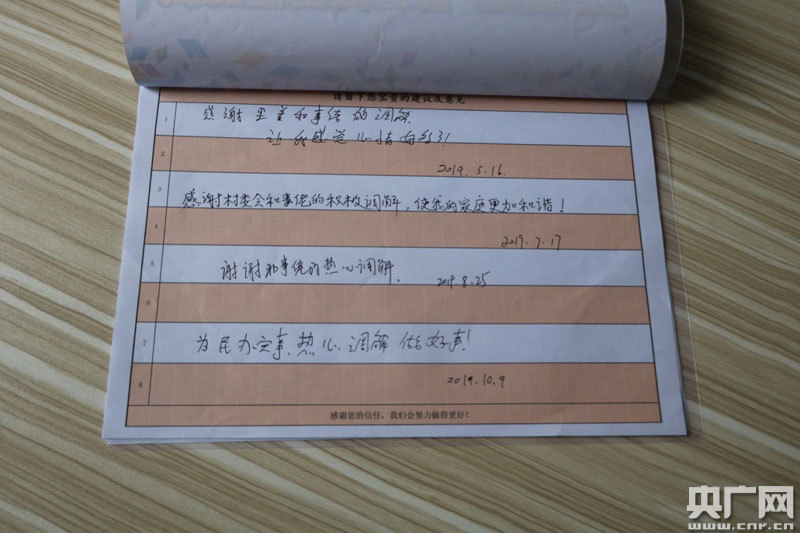 请留下您宝贵的建议及意见
1
感谢里委和事佬的调解
让我感觉心情好多了!
2
2019.5.16.
3
感谢村委会和事佬的积极调解,使我的家庭更加和谐!
4
2019.7.17
5
谢谢和事佬的热心调解.
2019.8.25
6
7
为民办实事、热心调解做好事!
8
2019.10.9
感谢您的信任,我们会努力做得更好!
央广网
www.cnr.cn